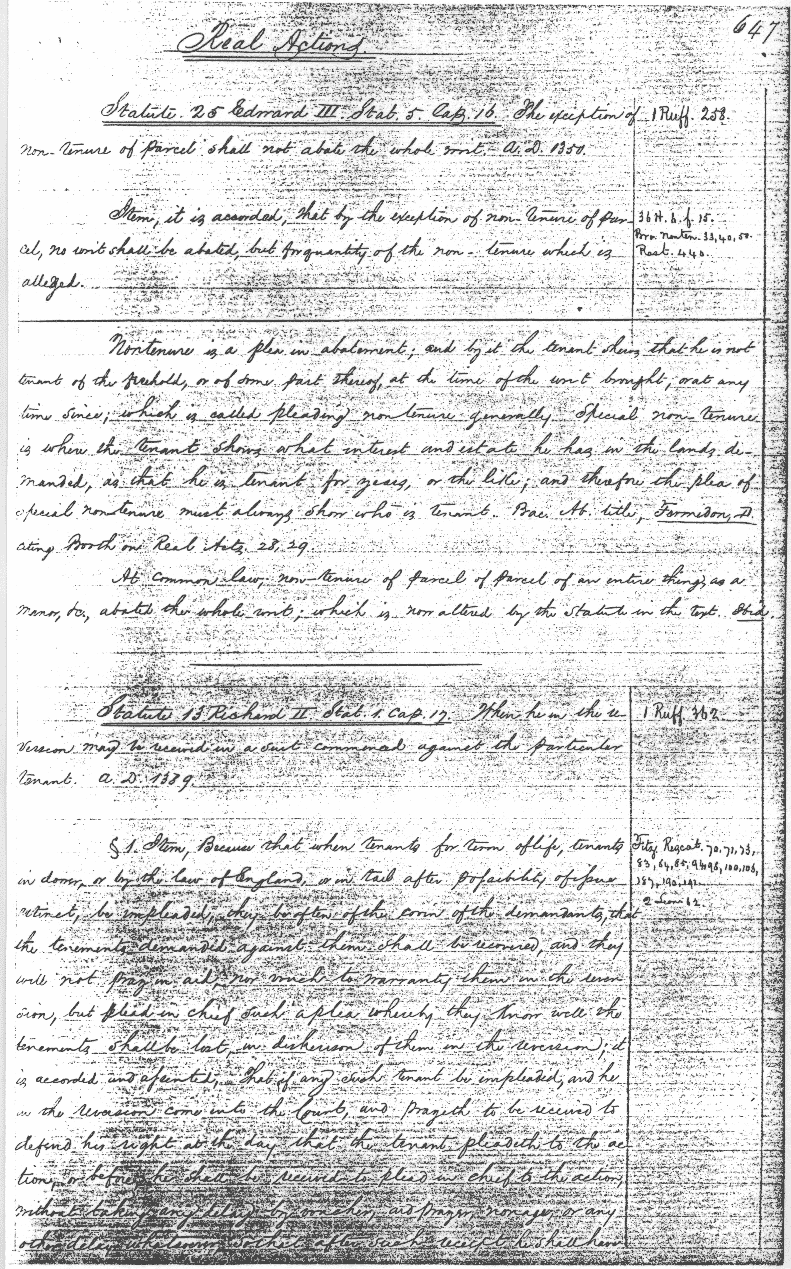 647
Real Actions.
Statute. 25 Edward III. Stat. 5. Cap. 16. The exception of
1 Ruff. 258.
non-tenure of parcel shall not abate the whole writ. A. D. 1350.
Item, it is accorded, that by the exception of non-tenure of par-
36 H. 6. f. 15.
Bro. Nonten. 33, 40, 50.
cel, no writ shall be abated, but for quantity of the non-tenure which is
Rast. 440.
alledged.
Nontenure is a plea in abatement; and by it the tenant shews that he is not
tenant of the freehold, or of some part thereof, at the time of the writ brought; or at any
time since; which is called pleading nontenure generally. Special non-tenure
is where the tenant shows what interest and estate he has in the lands de-
manded, as that he is tenant for years, or the like; and therefore the plea of
special nontenure must always show who is tenant. Bac. Ab. title, Formedon, D.
citing Booth on Real Acts. 28, 29.
At common law, non-tenure of parcel of parcel of an entire thing, as a
manor, &c., abated the whole writ; which is now altered by the Statute in the text. Ibid.
Statute 13 Richard II. Stat. 1. Cap. 17. When he in the re-
1 Ruff. 362
version may be received in a suit commenced against the particular
tenant. A. D. 1389.
§ 1. Item, Because that when tenants for term of life, tenants
Fitz. Resceit. 70, 71, 73,
in dower, or by the law of England, or in tail after possibility of issue
83, 84, 85, 94, 96, 100, 106,
187, 190, 192.
extinct, be impleaded, they be often of the covin of the demandants, that
2 Leon 62.
the tenements demanded against them shall be recovered, and they
will not pray in aid, nor vouch to warranty them in the rever
sion, but plead in chief such a plea whereby they know well the
tenements shall be lost, in disherison of them in the reversion; it
is accorded and assented, That if any such tenant be impleaded, and he
in the reversion come into the Court, and prayeth to be received to
defend his right at the day that the tenant pleadeth to the ac
tion, or before, he shall be received to plead in chief to the action,
without taking any delay by voucher, aid prayer, nonage, or any
other delay whatsoever, so that after such receipt he shall have